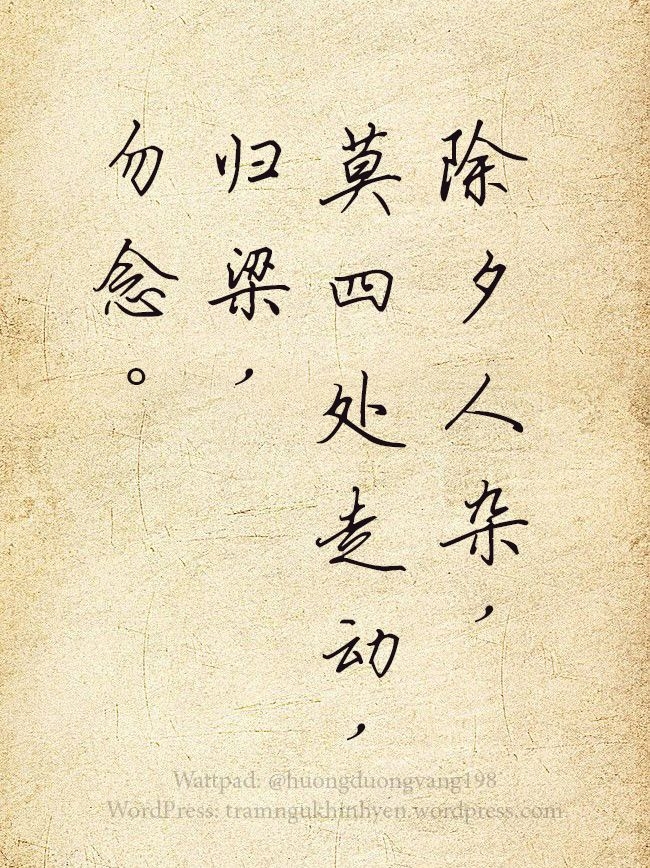 除夕人杂，
莫四处走动，
归梁，
勿念。
Wattpad: @huongduongvang198
WordPress: tramngukhinhyen.wordpress.com